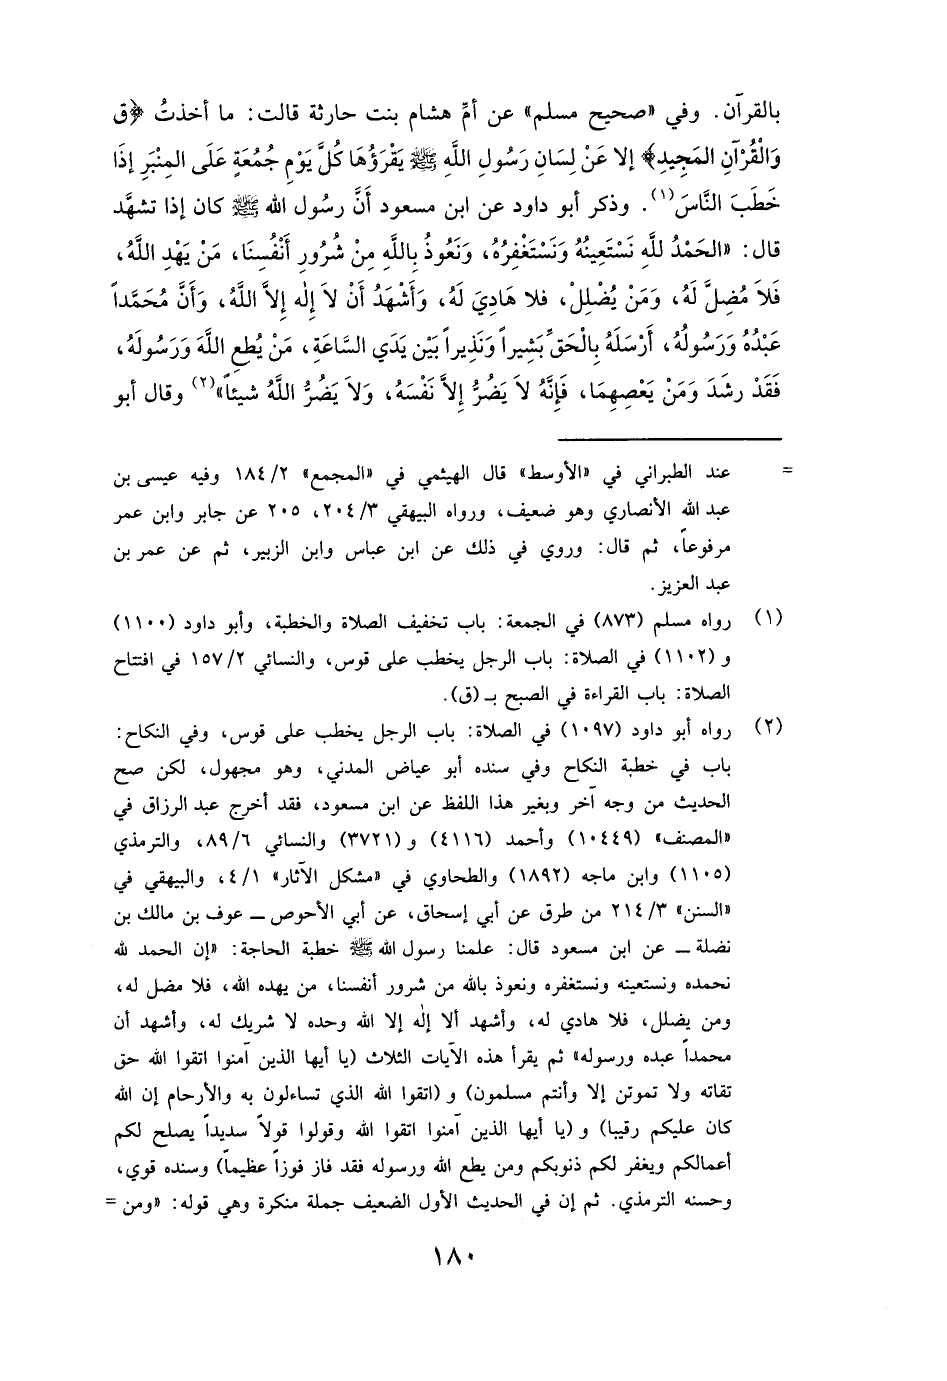 بالقرآن. وفي «صحيح مسلم» عن أمِّ هشام بنت حارثة قالت: ما أخذتُ ﴿ق
وَالْقُرْآنِ المَجِيدِ﴾ إلا عَنْ لِسَانِ رَسُولِ اللَّهِ ﷺ يَقْرَؤُهَا كُلَّ يَوْمِ جُمُعَةٍ عَلَى المِنْبَرِ إذَا
خَطَبَ النَّاسَ(١). وذكر أبو داود عن ابن مسعود أَنَّ رسُول الله ﷺ كان إذا تشهَّد
قال: «الحَمْدُ للَّهِ نَسْتَعِينُهُ وَنَسْتَغْفِرُهُ، وَنَعُوذُ بِاللَّهِ مِنْ شُرُورِ أَنْفُسِنَا، مَنْ يَهْدِ اللَّهُ،
فَلاَ مُضِلَّ لَهُ، وَمَنْ يُضْلِلْ، فلا هَادِيَ لَهُ، وَأَشْهَدُ أَنْ لاَ إِلٰه إِلاَّ اللَّهُ، وَأَنَّ مُحَمَّداً
عَبْدُهُ وَرَسُولُهُ، أَرْسَلَهُ بِالْحَقِّ بَشِيراً وَنَذِيراً بَيْن يَدَي السَّاعَةِ، مَنْ يُطِعِ اللَّهَ وَرَسُولَهُ،
فَقَدْ رشَدَ وَمَنْ يَعْصِهِمَا، فَإِنَّهُ لاَ يَضُرُّ إِلاَّ نَفْسَهُ، وَلاَ يَضُرُّ اللَّهُ شيئاً»(٢) وقال أبو
= عند الطبراني في «الأوسط» قال الهيثمي في «المجمع» ١٨٤/٢ وفيه عيسى بن
عبد الله الأنصاري وهو ضعيف، ورواه البيهقي ٢٠٤/٣، ٢٠٥ عن جابر وابن عمر
مرفوعاً، ثم قال: وروي في ذلك عن ابن عباس وابن الزبير، ثم عن عمر بن
عبد العزيز.
(١) رواه مسلم (٨٧٣) في الجمعة: باب تخفيف الصلاة والخطبة، وأبو داود (١١٠٠)
و (١١٠٢) في الصلاة: باب الرجل يخطب على قوس، والنسائي ١٥٧/٢ في افتتاح
الصلاة: باب القراءة في الصبح بـ (ق).
(٢) رواه أبو داود (١٠٩٧) في الصلاة: باب الرجل يخطب على قوس، وفي النكاح:
باب في خطبة النكاح وفي سنده أبو عياض المدني، وهو مجهول، لكن صح
الحديث من وجه آخر وبغير هذا اللفظ عن ابن مسعود، فقد أخرج عبد الرزاق في
«المصنف» (١٠٤٤٩) وأحمد (٤١١٦) و(٣٧٢١) والنسائي ٨٩/٦، والترمذي
(١١٠٥) وابن ماجه (١٨٩٢) والطحاوي في «مشكل الآثار» ٤/١، والبيهقي في
«السنن» ٢١٤/٣ من طرق عن أبي إسحاق، عن أبي الأحوص ــ عوف بن مالك بن
نضلة ــ عن ابن مسعود قال: علمنا رسول الله ﷺ خطبة الحاجة: «إن الحمد لله
نحمده ونستعينه ونستغفره ونعوذ بالله من شرور أنفسنا، من يهده الله، فلا مضل له،
ومن يضلل، فلا هادي له، وأشهد ألا إلٰه إلا الله وحده لا شريك له، وأشهد أن
محمداً عبده ورسوله» ثم يقرأ هذه الآيات الثلاث (يا أيها الذين آمنوا اتقوا الله حق
تقاته ولا تموتن إلا وأنتم مسلمون) و (اتقوا الله الذي تساءلون به والأرحام إن الله
كان عليكم رقيبا) و (يا أيها الذين آمنوا اتقوا الله وقولوا قولاً سديداً يصلح لكم
أعمالكم ويغفر لكم ذنوبكم ومن يطع الله ورسوله فقد فاز فوزاً عظيماً) وسنده قوي،
وحسنه الترمذي. ثم إن في الحديث الأول الضعيف جملة منكرة وهي قوله: «ومن =
١٨٠